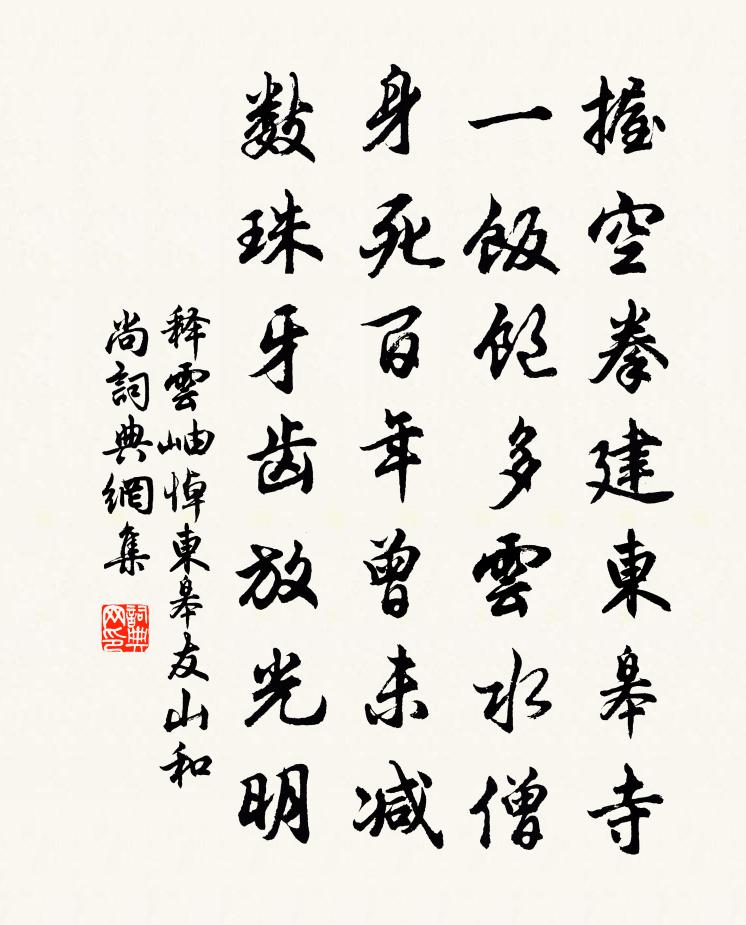 握空拳建東皋寺
一飯飽多雲水僧
身死百年曾未減
数珠牙齿放光明
释雲岫悼東皋友山和
尚詞典網集
詞典网印